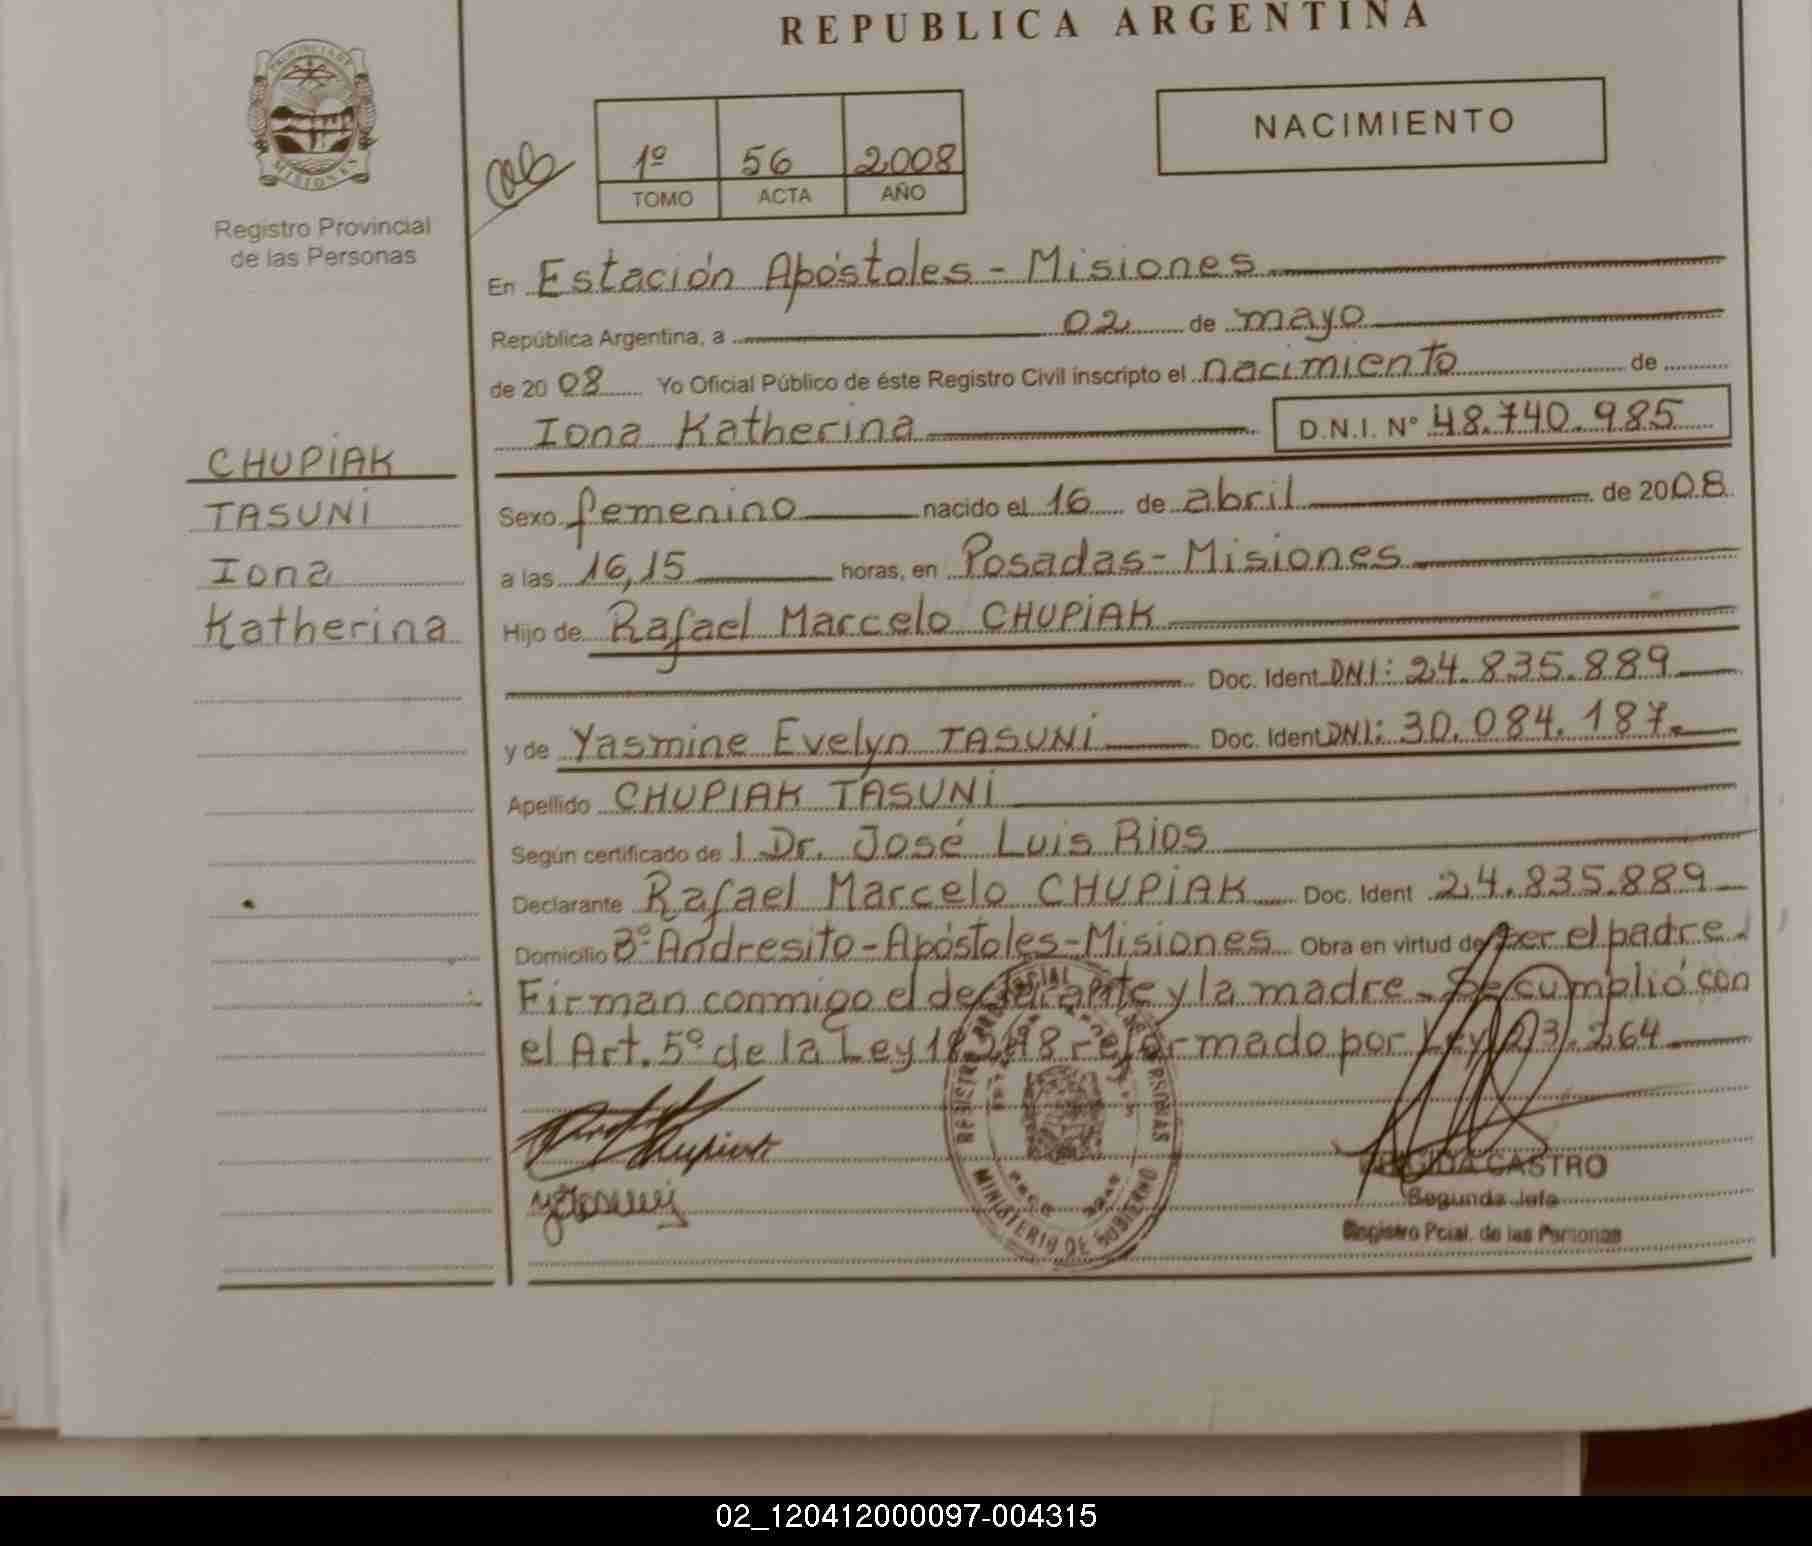 REPUBLICA ARGENTINA
PROVINCIA DE
MISIONES
Registro Provincial
de las Personas
1º 56 2008
TOMO ACTA AÑO
NACIMIENTO
En Estación Apóstoles - Misiones
República Argentina, a 02 de mayo
de 2008 Yo Oficial Público de éste Registro Civil inscripto el nacimiento de
Iona Katherina D.N.I. Nº 48.740.985
CHUPIAK
TASUNI
Iona
Katherina
Sexo femenino nacido el 16 de abril de 2008
a las 16,15 horas, en Posadas - Misiones
Hijo de Rafael Marcelo CHUPIAK
Doc. Ident DNI: 24.835.889
y de Yasmine Evelyn TASUNI Doc. Ident DNI: 30.084.187.
Apellido CHUPIAK TASUNI
Según certificado de l Dr. José Luis RIOS
Declarante Rafael Marcelo CHUPIAK Doc. Ident 24.835.889
Domicilio Bº Andresito - Apóstoles - Misiones Obra en virtud de ser el padre.
Firman conmigo el declarante y la madre. Se cumplió con
el Art. 5º de la Ley 18248 reformado por Ley 23.264
REGISTRO PROVINCIAL DE LAS PERSONAS
MINISTERIO DE GOBIERNO
CASTRO
Segunda Jefe
Registro Pcial. de las Personas
02_120412000097-004315